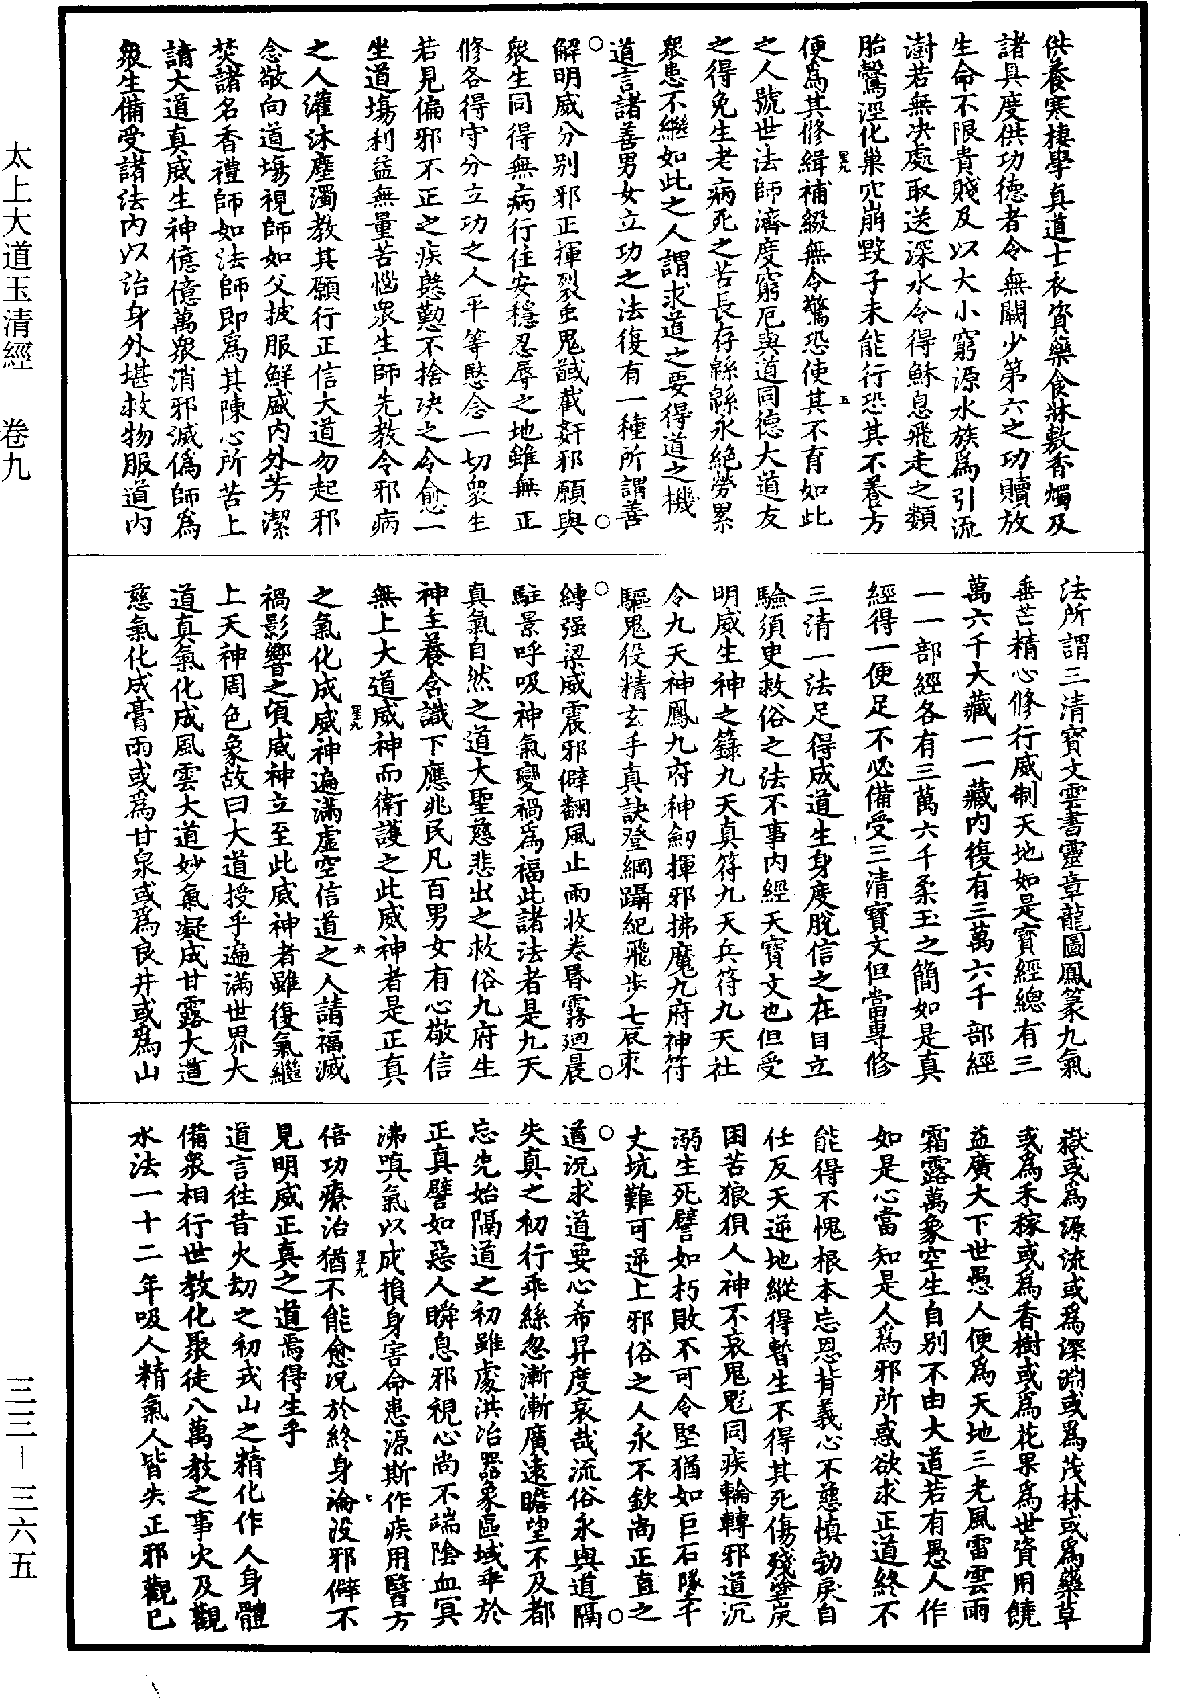 供養寒棲學真道士衣資藥食牀敷香燭及
諸具度供功德者令無闕少第六之功贖放
生命不限貴賤及以大小窮源水族為引流
澍若無決處取送深水令得穌息飛走之類
胎鷩淫化巢穴崩毀子未能行恐其不養方
便為其修緝補級無令驚恐使其不育如此
之人號世法師濟度窮厄與道同德大道友
之得免生老病死之苦長存綿綿永絕勞累
衆患不繼如此之人謂求道之要得道之機
道言諸善男女立功之法復有一種所謂善
解明威分別邪正揮裂虫鬼馘截姧邪願與
衆生同得無病行住安穩忍辱之地雖無正
修各得守分立功之人平等愍念一切衆生
若見偏邪不正之疾慇懃不捨決之令愈一
坐道塲利益無量苦惱衆生師先教令邪病
之人灌沐塵濁教其願行正信大道勿起邪
念敬向道塲視師如父披服鮮盛內外芳潔
焚諸名香禮師如法師即為其陳心所苦上
請大道真威生神億億萬衆消邪滅偽師為
衆生備受諸法內以治身外堪救物服道內
法所謂三清寶文雲書靈章龍圖鳳篆九氣
垂芒精心修行威制天地如是寶經總有三
萬六千大藏一一藏內復有三萬六千部經
一一部經各有三萬六千柔玉之簡如是真
經得一便足不必備受三清寶文但當專修
三清一法足得成道生身度脫信之在目立
驗須臾救俗之法不事內經天寶文也但受
明威生神之籙九天真符九天兵符九天社
令九天神鳳九府神劒揮邪拂魔九府神符
驅鬼役精玄手真訣登綱躡紀飛步七辰束
縛强梁威震邪僻翻風止雨收卷昬霧迴晨
駐景呼吸神氣變禍為福此諸法者是九天
真氣自然之道大聖慈悲出之救俗九府生
神主養含識下應兆民凡百男女有心敬信
無上大道威神而衛護之此威神者是正真
之氣化成威神遍滿虛空信道之人請福滅
禍影響之頃威神立至此威神者雖復氣繼
上天神周色象故曰大道授乎遍滿世界大
道真氣化成風雲大道妙氣凝成甘露大道
慈氣化成膏雨或為甘泉或為良井或為山
嶽或為源流或為深淵或為茂林或為藥草
或為禾稼或為香樹或為花果為世資用饒
益廣大下世愚人便為天地三光風雷雲雨
霜露萬象空生自別不由大道若有愚人作
如是心當知是人為邪所惑欲求正道終不
能得不愧根本忘恩背義心不慈慎勃戾自
任反天逆地縱得暫生不得其死傷殘童戾
困苦狼狽人神不哀鬼魁同疾輪轉邪道沉
溺生死譬如朽敗不可令堅猶如巨石墜千
丈坑難可逆上邪俗之人永不欽尚正直之
道況求道要心希昇度哀哉流俗永與道隔
失真之初行乖絲忽漸漸廣遠瞻望不及都
忘先始隔道之初雖處洪冶器象區域乖於
正真譬如惡人瞬息邪視心尚不端陰血冥
沸嗔氣以成損身害命患源斯作疾用醫方
倍功療治猶不能愈況於終身淪没邪僻不
見明威正真之道焉得生乎
道言往昔火劫之初戎山之精化作人身體
備衆相行世教化聚徒八萬教之事火及觀
水法一十二年吸人精氣人皆失正邪觀已
太上大道玉清經　卷九
三三－三六五